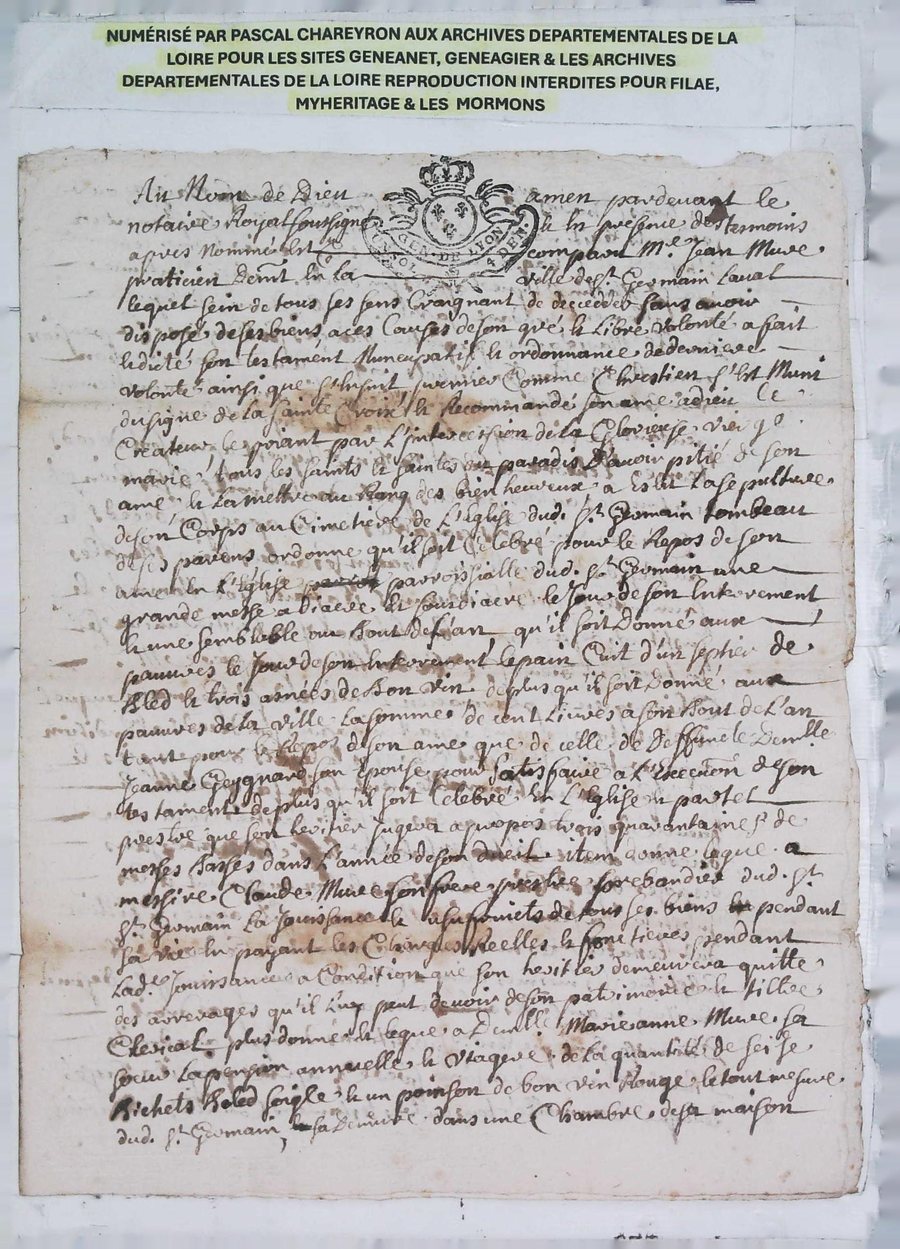 NUMÉRISÉ PAR PASCAL CHAREYRON AUX ARCHIVES DEPARTEMENTALES DE LA
LOIRE POUR LES SITES GENEANET, GENEAGIER & LES ARCHIVES
DEPARTEMENTALES DE LA LOIRE REPRODUCTION INTERDITES POUR FILAE,
MYHERITAGE & LES MORMONS
Au Nom de Dieu amen pardevant le
notaire Royal soussigné & en presence des temoins
apres Nommé est comparu Me. Jean Mure
praticien demt en la ville de st. Germain Laval
lequel sein de tous ses sens Craignant de decedder sans avoir
disposé de ses biens a ces Causes de son gré & Libre volonté a fait
& dicté son testament Nuncupatif & ordonnance de derniere
volonté ainsi que s'ensuit premier Comme Chrestien s'est Muni
du signe de la sainte Croix & Recommandé son ame a dieu le
Createur le priant par L'intercession de la Glorieuse vierge
marie tous les saints & saintes du paradis d'avoir pitié de son
ame & La mettre au Rang des bien heureux a Esleu La sepulture
de son Corps au Cimetiere de L'Eglise dud. st. Germain tombeau
de ses parens ordonne qu'il soit Celebré pour le Repos de son
ame en L'Eglise parroissialle dud. st. Germain une
grande messe a diacre & sousdiacre le Jour de son Enterrement
& une semblable au bout de L'an qu'il soit Donné aux
pauvres le Jour de son Enterrement le pain Cuit d'un septier de
Bled & trois asnées de bon vin de plus qu'il soit Donné aux
pauvres de la ville La somme de cent Livres a son bout de L'an
tant pour le Repos de son ame que de celle de Deffunte Demlle
Jeanne son Epouse pour satisfaire a L'Execution de son
testament de plus qu'il soit Celebré en L'Eglise & par tel
prestre que son heritier Jugera a propos trois quarantaines de
messes basses dans L'année de son deceds item donne legue a
messire Claude Mure son frere prestre prebandier dud. st.
st. Germain La Jouissance & usufruicts de tous ses biens pendant
sa vie en payant les Charges Reelles & foncieres pendant
Lad. Jouissance a Condition que son heritier demeurera quitte
des arrerages qu'il Luy peut devoir de son patrimoine & tiltre
Clerical plus donne & legue a Demlle Marieanne Mure sa
soeur La pension annuelle & viagere de la quantité de seise
bichets Bled seigle & un poinson de bon vin Rouge le tout mesure
dud. st. Germain, sa Demeure dans une Chambre de sa maison